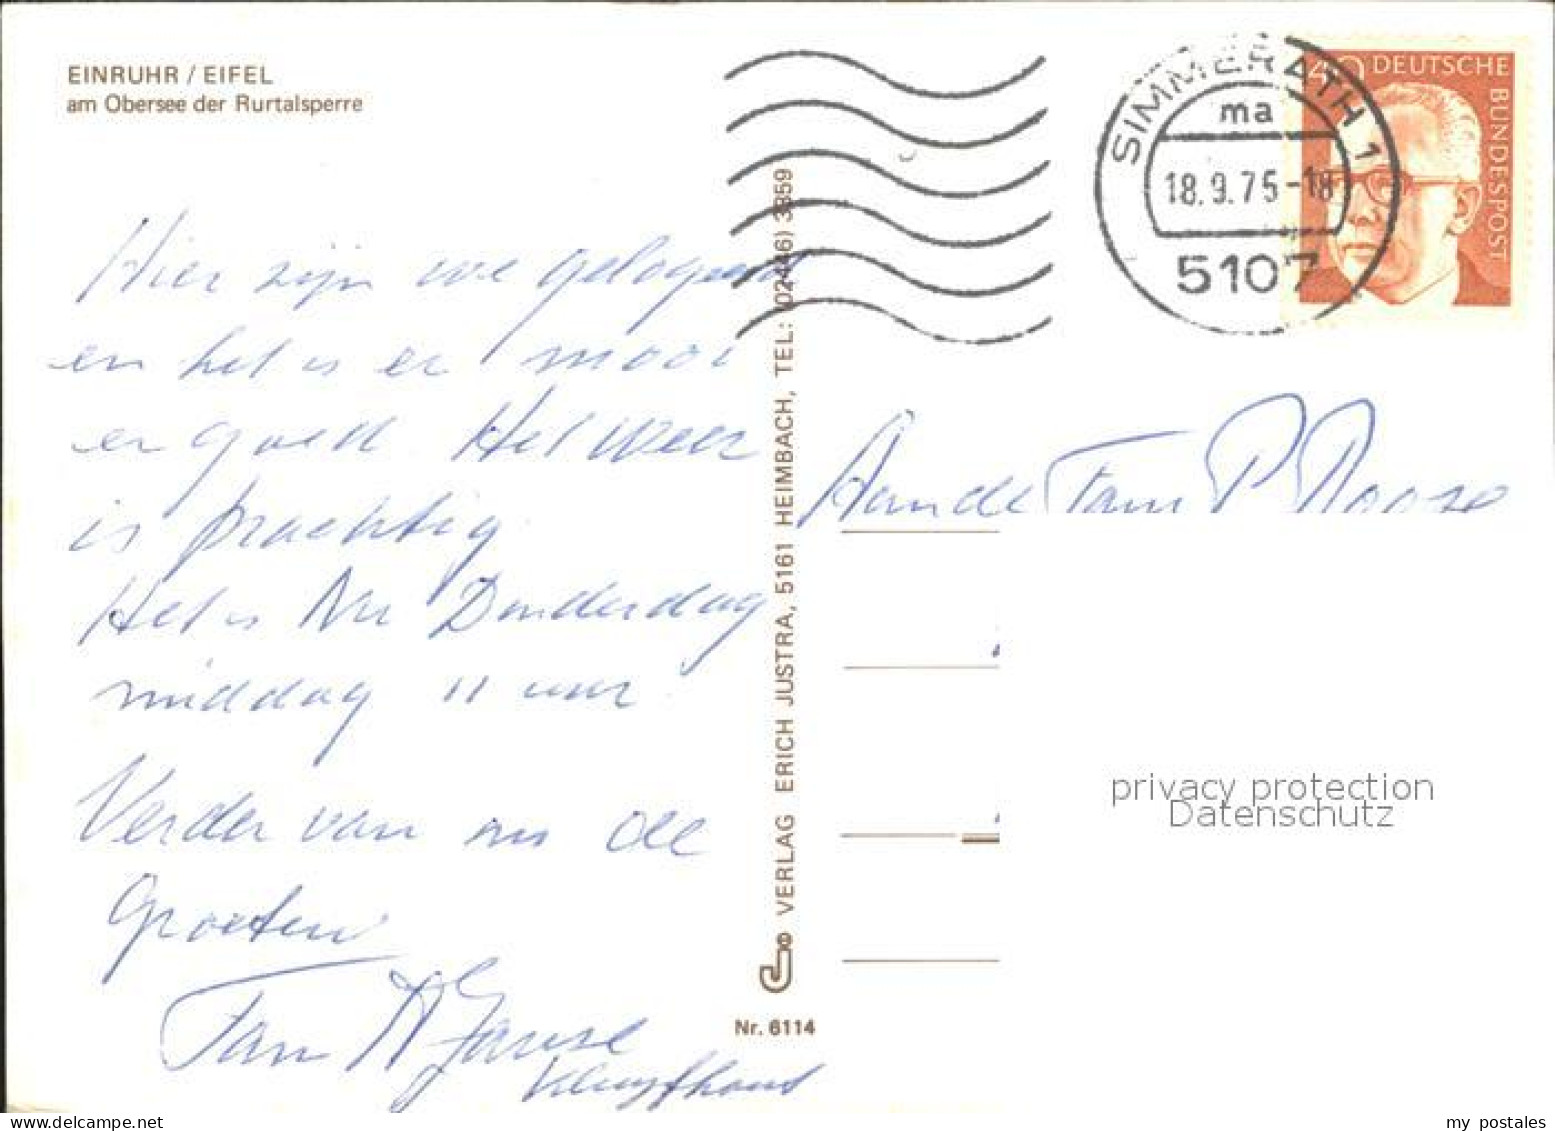 EINRUHR / EIFEL
am Obersee der Rurtalsperre
SIMMERATH 1
ma
18.9.75-18
5107
40 DEUTSCHE
BUNDESPOST
Hier zijn we gelogeerd
en het is er mooi
en goed. Het weer
is prachtig
Het is Nu Donderdag
middag 11 uur
Verder van ons de
Groeten
Fam
Aan de Fam P
VERLAG ERICH JUSTRA, 5161 HEIMBACH, TEL: (02446) 3359
Nr. 6114
privacy protection
Datenschutz
my postales